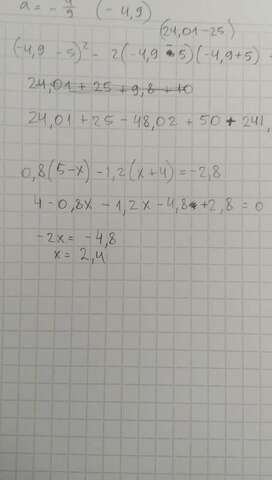 a = - 4/9 (-4,9)
(24,01-25)
(-4,9 - 5)² - 2(-4,9 - 5)(-4,9+5)
24,01 + 25 + 9,8 + 10
24,01 + 25 - 48,02 + 50 + 241,
0,8(5-x) - 1,2(x+4) = -2,8
4 - 0,8x - 1,2x - 4,8 + 2,8 = 0
-2x = -4,8
x = 2,4